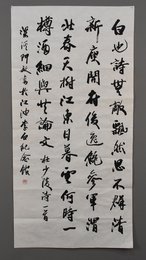 白也詩無敵飄然思不群清
新庾開府俊逸鮑參軍渭
北春天樹江東日暮雲何時一
樽酒細與論文杜少陵詩一首
書於江油李白紀念館